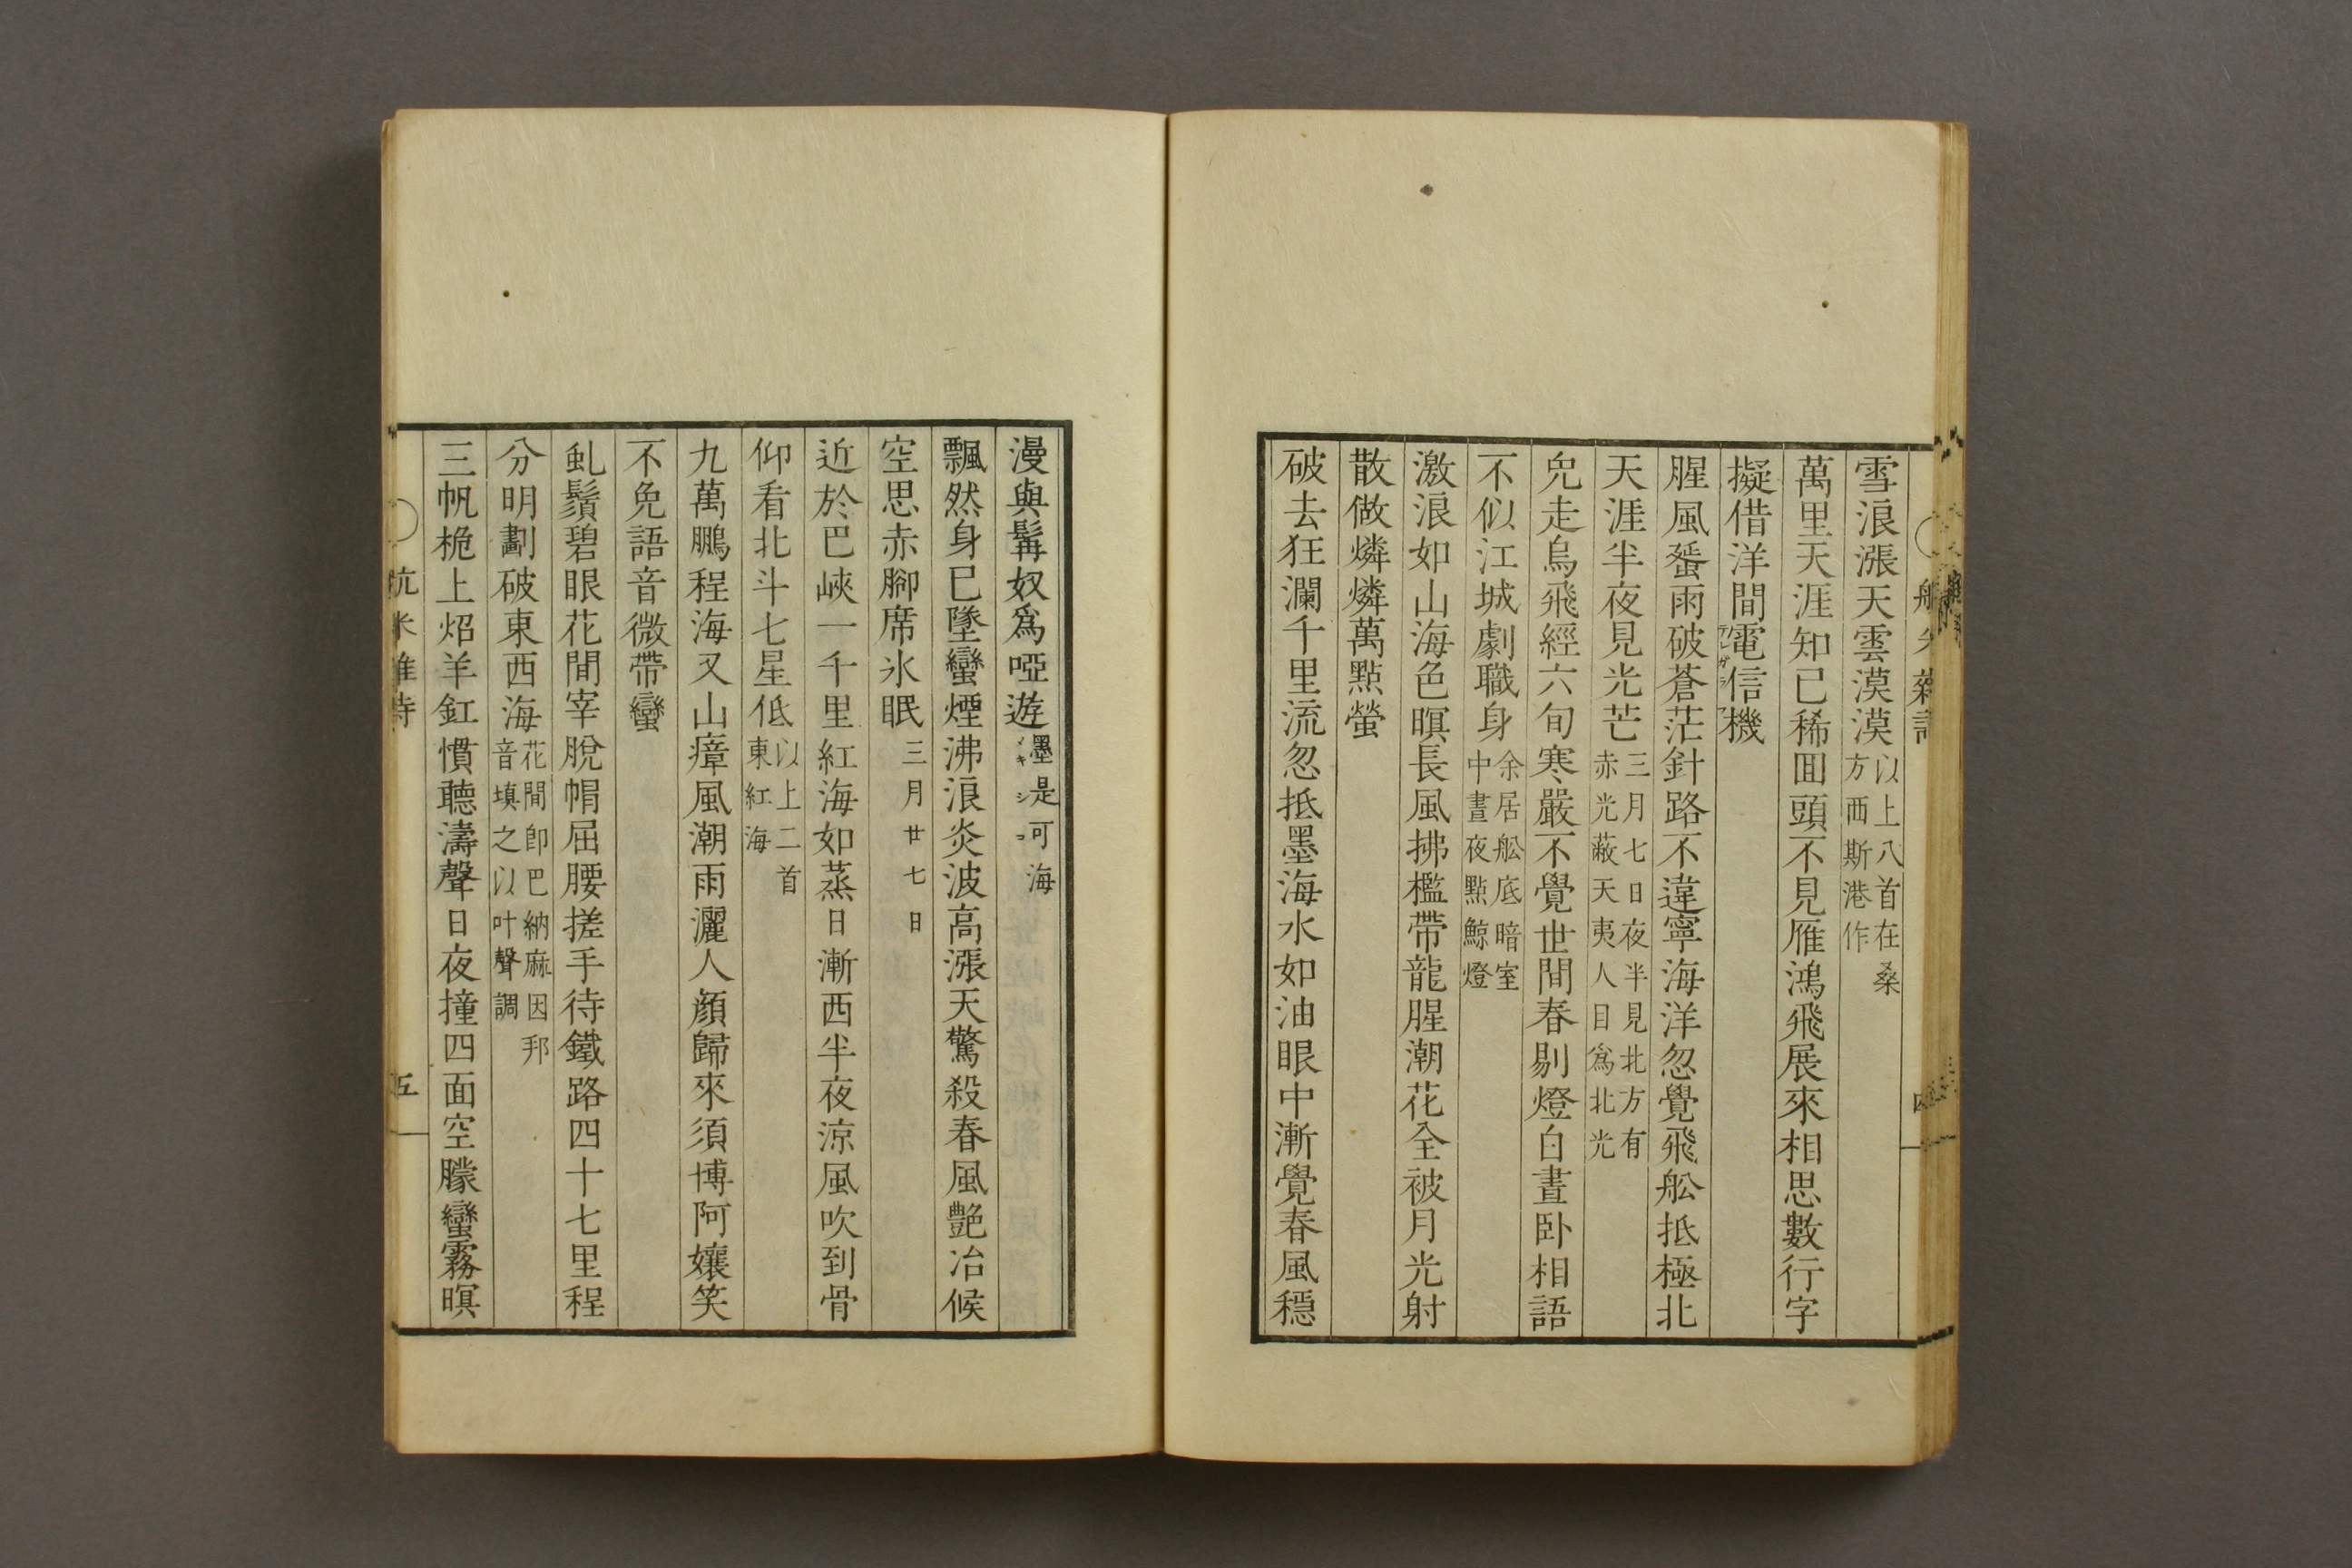 雪浪漲天雲漠漠以上八首在桑
方西斯港作
萬里天涯知已稀囬頭不見雁鴻飛展來相思數行字
擬借洋間電信機
腥風蜑雨破蒼茫針路不違寧海洋忽覺飛舩抵極北
天涯半夜見光芒三月七日夜半見北方有
赤光蔽天夷人目爲北光
兔走烏飛經六旬寒嚴不覺世間春剔燈白晝卧相語
不似江城劇職身余居舩底暗室
中晝夜點鯨燈
激浪如山海色暝長風拂檻帶龍腥潮花全被月光射
散做燐燐萬點螢
破去狂瀾千里流忽抵墨海水如油眼中漸覺春風穩
漫與髯奴爲啞遊墨是可海
メキシコ
飄然身已墜蠻煙沸浪炎波高漲天驚殺春風艷冶候
空思赤腳席氷眠三月廿七日
近於巴峽一千里紅海如蒸日漸西半夜涼風吹到骨
仰看北斗七星低以上二首
東紅海
九萬鵬程海又山瘴風潮雨灑人顏歸來須博阿孃笑
不免語音微帶蠻
虬鬚碧眼花間宰脫帽屈腰搓手待鐵路四十七里程
分明劃破東西海花間卽巴納麻因邦
音填之以叶聲調
三帆桅上炤羊釭慣聽濤聲日夜撞四面空朦蠻霧暝
五